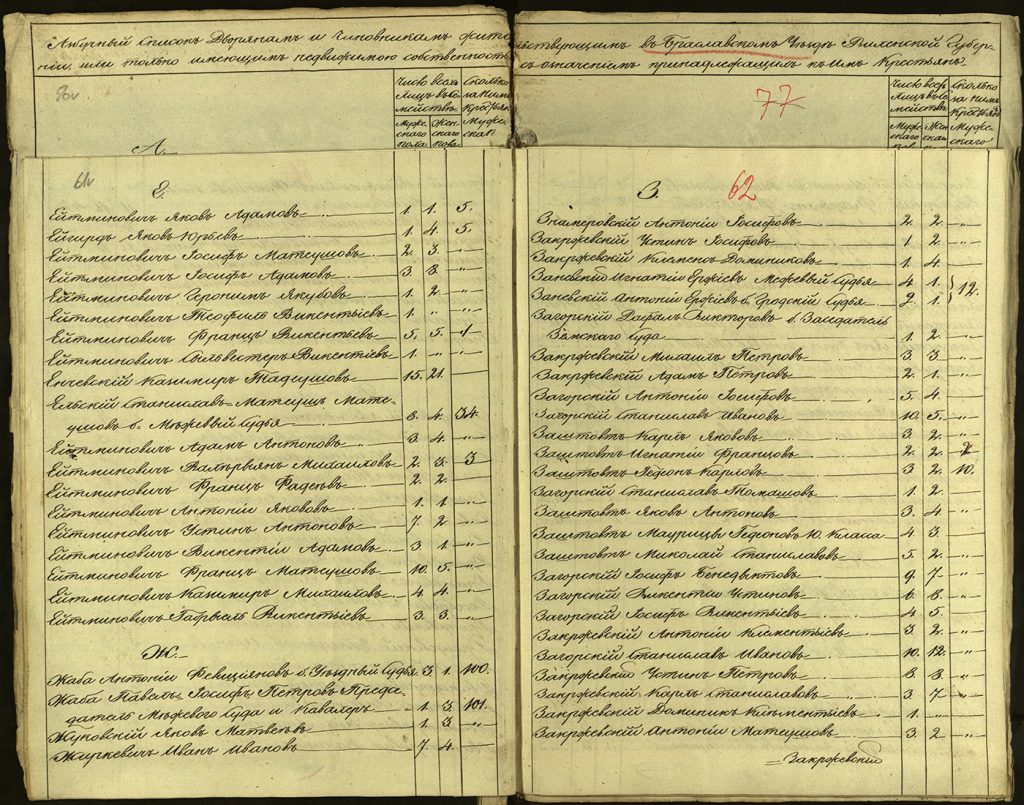 Алфавитный Список Дворянам и Чиновникам жительствующим в Браславском Уезде Виленской Губернии или только имеющим недвижимою собственность
с означением принадлежащих к им Крестьян
76v
77
Число всех Лиц в Семействе
Мужескаго пола
Женскаго пола
Сколько за ними Крестьян Мужескаго
Число всех Лиц в Семействе
Сколько за ними
А.
61v
Е.
Ейтминовичъ Яковъ Адамовъ 1. 1. 5.
Ейгирдъ Яковъ Юрьевъ 1. 4. 5.
Ейтминовичъ Іосифъ Матеушовъ 2. 3. „
Ейтминовичъ Іосифъ Адамовъ 3. 8. „
Ейтминовичъ Іеронимъ Якубовъ 1. 2. „
Ейтминовичъ Теофилъ Викентьевъ 1. „ „
Ейтминовичъ Францъ Викентьевъ 5. 5.
Ейтминовичъ Сильвестеръ Викентьевъ 1. „
Енчевскій Казимиръ Тадеушовъ 15. 21.
Ельскій Станиславъ-Матеушъ Мате-
ушовъ б. Межевый Судья 8. 4. 34.
Ейтминовичъ Адамъ Антоновъ 3. 4. „
Ейтминовичъ Валерьянъ Михаиловъ 2. 3. 3
Ейтминовичъ Францъ Фадеевъ 2. 2.
Ейтминовичъ Антоній Якововъ 1. 1 „
Ейтминовичъ Устинъ Антоновъ 7. 2 „
Ейтминовичъ Викентій Адамовъ 3. 1 „
Ейтминовичъ Францъ Матеушовъ 10. 5. „
Ейтминовичъ Казимиръ Михаиловъ 4. 4. „
Ейтминовичъ Габрьель Викентьевъ 3. 3. „
Ж.
Жаба Антоній Фелиціановъ б. Уездный Судья 3. 1. 100.
Жаба Павелъ-Іосифъ Петровъ Предсе-
датель Межевого Суда и Кавалеръ 1. 3. 101.
Жуковскій Яковъ Матвеевъ 1. 3 „
Журкевичъ Иванъ Ивановъ 7. 4.
З.
62
Знамеровскій Антоній Іосифовъ 2. 2. „
Закржевскій Устинъ Іосифовъ 1. 2. „
Закржевскій Клеменсъ Доминиковъ 1. 4.
Заневскій Игнатій Ержіевъ Межевый Судья 4 1. 12.
Заневскій Антоній Ержіевъ б. Гродскій Судья 2 1.
Загорскій Викторовъ б. Заседатель
Земскаго Суда 1. 2 „
Закржевскій Михаилъ Петровъ 3 3 „
Закржевскій Адамъ Петровъ 2. 1. „
Загорскій Антоній Іосифовъ 5. 4.
Загорскій Станиславъ Ивановъ 10. 5. „
Заштовтъ Карлъ Якововъ 3. 2. „
Заштовтъ Игнатій Францовъ 2. 2.
Заштовтъ Гедеонъ Карловъ 3 2. 10.
Загорскій Станиславъ Томашовъ 1. 2. „
Заштовтъ Яковъ Антоновъ 3. 4 „
Заштовтъ Маурицы Гедеоновъ 10. Класса 4. 3.
Заштовтъ Миколай Станиславовъ 5. 2. „
Загорскій Іосифъ Бенедыктовъ 9. 7 „
Загорскій Викентій Устиновъ 6. 8. „
Загорскій Іосифъ Викентьевъ 4. 5.
Закржевскій Антоній Клементьевъ 3. 2. „
Загорскій Станиславъ Ивановъ 10. 12. „
Закржевскій Устинъ Петровъ 8. 3. „
Закржевскій Карлъ Станиславовъ 3 7
Закржевскій Доминикъ Клементьевъ 1. „
Закржевскій Антоній Матеушовъ 3. 2 „
Закржевскій